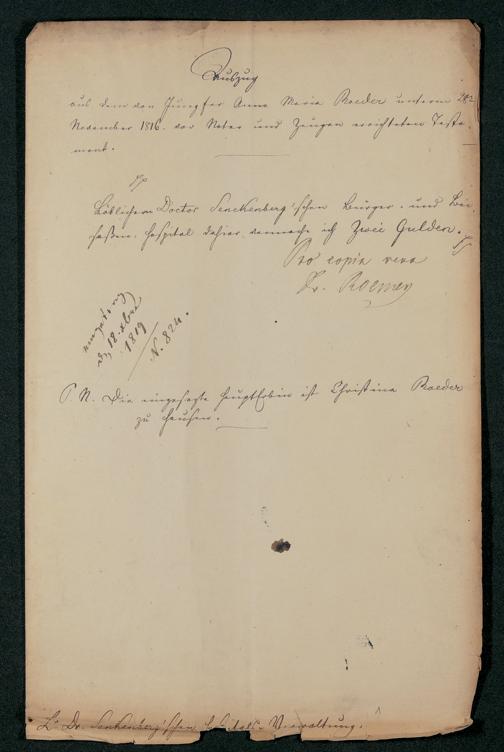 Auszug
aus dem von Jungfer Anna Maria Roeder unterm 28t
November 1816. vor Notar und Zeugen errichteten Testa-
ment.
pp
Löblichem Doctor Senckenberg'schen Bürger- und Bei-
saßen-Hospital dahier vermache ich Zwei Gulden. pp
Pro copia vera
Dr. Roemer
eingetrag
d. 18. xbr
1819
N. 824.
P. N. Die eingesezte HauptErbin ist Christina Roeder
zu Hausen.
L. Dr. Senkenberg'schen Hospitals-Verwaltung.